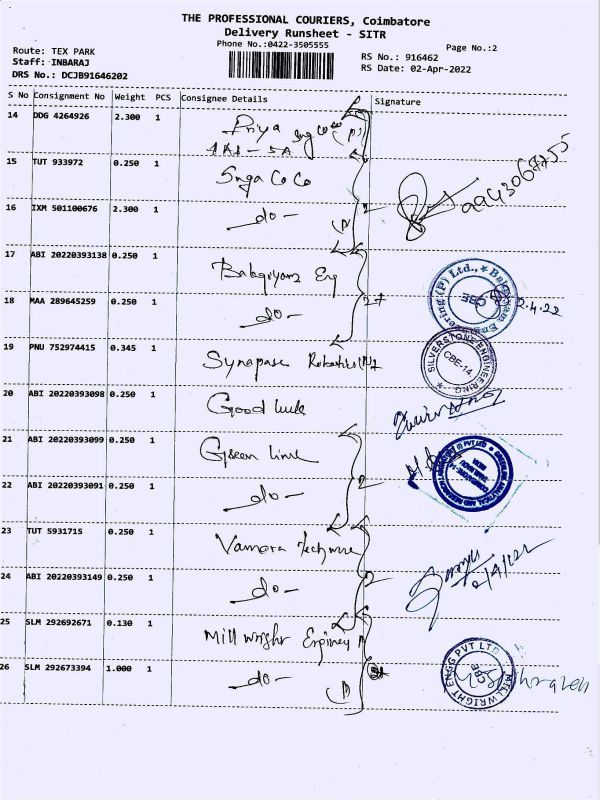 THE PROFESSIONAL COURIERS, Coimbatore
Delivery Runsheet - SITR
Phone No.:0422-3505555
Page No.:2
Route: TEX PARK
Staff: INBARAJ
DRS No.: DCJB91646202
RS No.: 916462
RS Date: 02-Apr-2022
S No Consignment No Weight PCS Consignee Details Signature
14 DDG 4264926 2.300 1
Priya
15 TUT 933972 0.250 1
16 IXM 501100676 2.300 1
do -
17 ABI 20220393138 0.250 1
18 MAA 289645259 0.250 1
do -
2.4.22
19 PNU 752974415 0.345 1
Synapase Robotics
SILVERSTONE ENGINEERING
CBE-14.
20 ABI 20220393098 0.250 1
Good luck
21 ABI 20220393099 0.250 1
Green line
22 ABI 20220393091 0.250 1
do -
23 TUT 5931715 0.250 1
24 ABI 20220393149 0.250 1
do -
25 SLM 292692671 0.130 1
Mill wright
26 SLM 292673394 1.000 1
do -
MILLWRIGHT ENGG PVT LTD
CBE